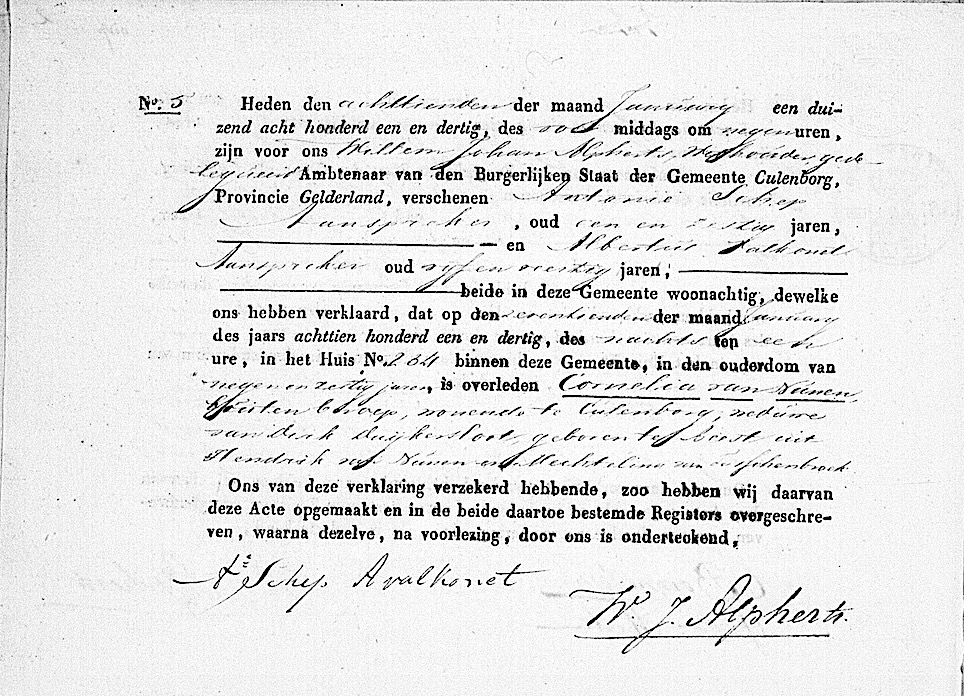 No. 5 Heden den achttienden der maand January een dui-
zend acht honderd een en dertig, des voor middags om negen uren,
zijn voor ons Willem Johan Alpherts, Wethouder, gede-
legueerd Ambtenaar van den Burgerlijken Staat der Gemeente Culenborg,
Provincie Gelderland, verschenen Antonie Schep
Aanspreker, oud een en zestig jaren,
— en Albertus Valkonet
Aanspreker oud vyf en veertig jaren,
beide in deze Gemeente woonachtig, dewelke
ons hebben verklaard, dat op den zeventienden der maand January
des jaars achttien honderd een en dertig, des nachts ten een
ure, in het Huis No. 264 binnen deze Gemeente, in den ouderdom van
negen en zestig jaren, is overleden Cornelia van Nünen
buiten beroep, wonende te Culenborg, weduwe
van Dirk Duijkersloot, geboren te Beest uit
Hendrik van Nünen en Mechtelina van
Ons van deze verklaring verzekerd hebbende, zoo hebben wij daarvan
deze Acte opgemaakt en in de beide daartoe bestemde Registers overgeschre-
ven, waarna dezelve, na voorlezing, door ons is onderteekend,
Schep A valkonet
W. J. Alpherts.